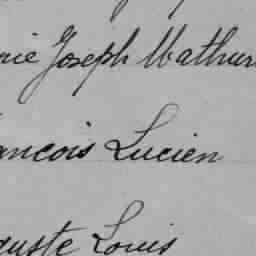 rie Joseph Mathur
ancois Lucien
guste Louis